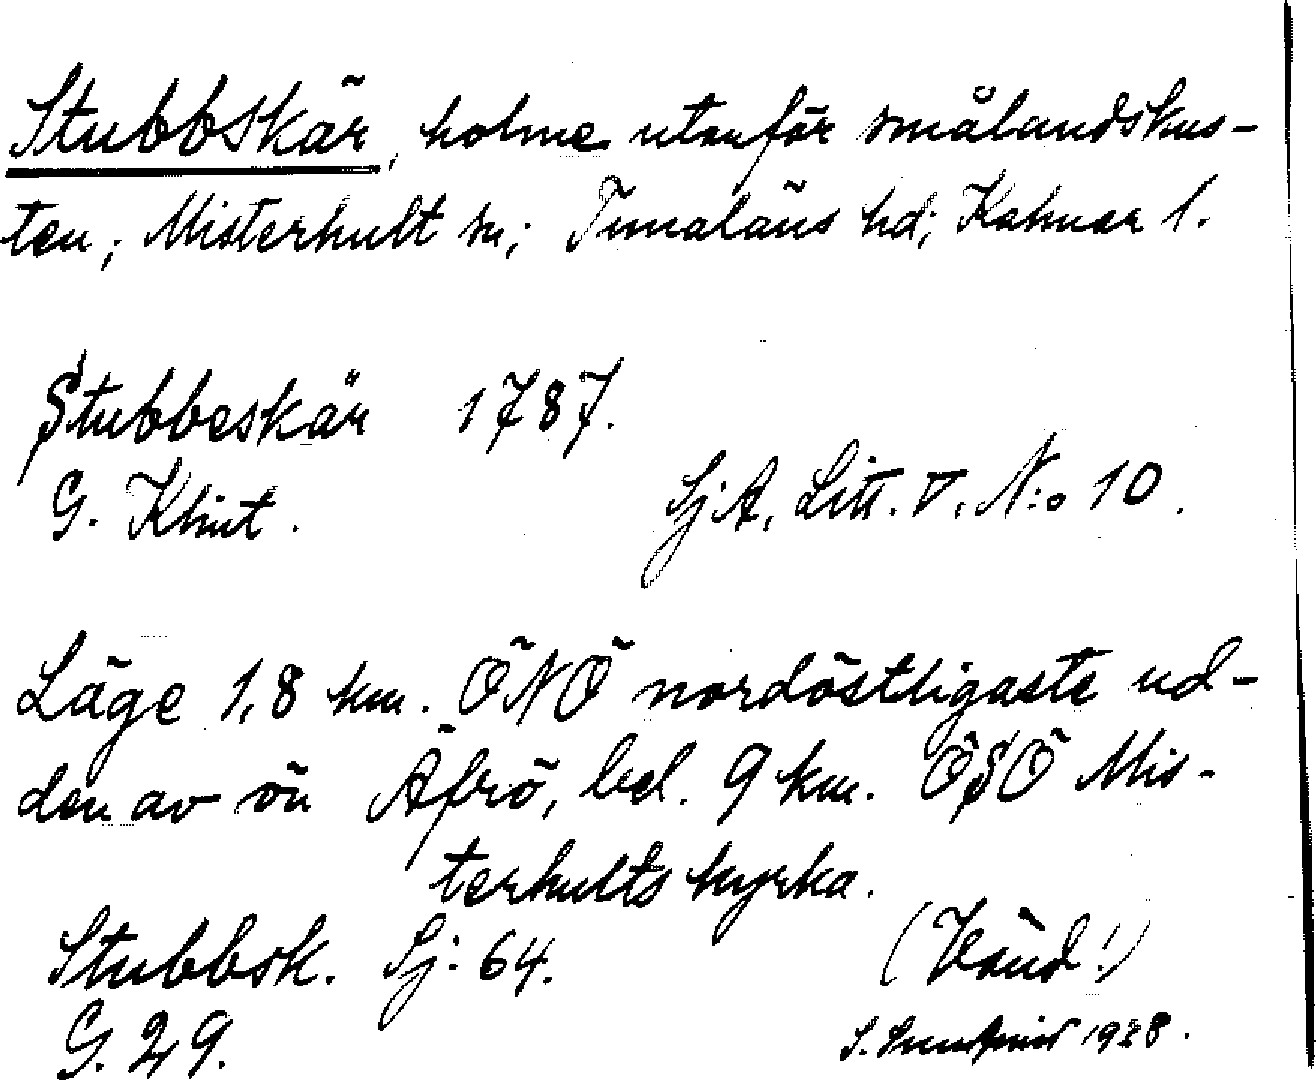 Stubbskär, holme utanför smålandskus-
ten; Misterhult sn; Tunaläns hd; Kalmar l.
Stubbeskär 1787.
G. Klint. SjA, Litt. V. N:o 10.
Läge 1,8 km. ÖNÖ nordöstligaste ud-
den av ön Äfrö, bel. 9 km. ÖSÖ Mis-
terhults kyrka.
Stubbsk. Sj: 64. (Vänd!)
G. 29. S. 1928.